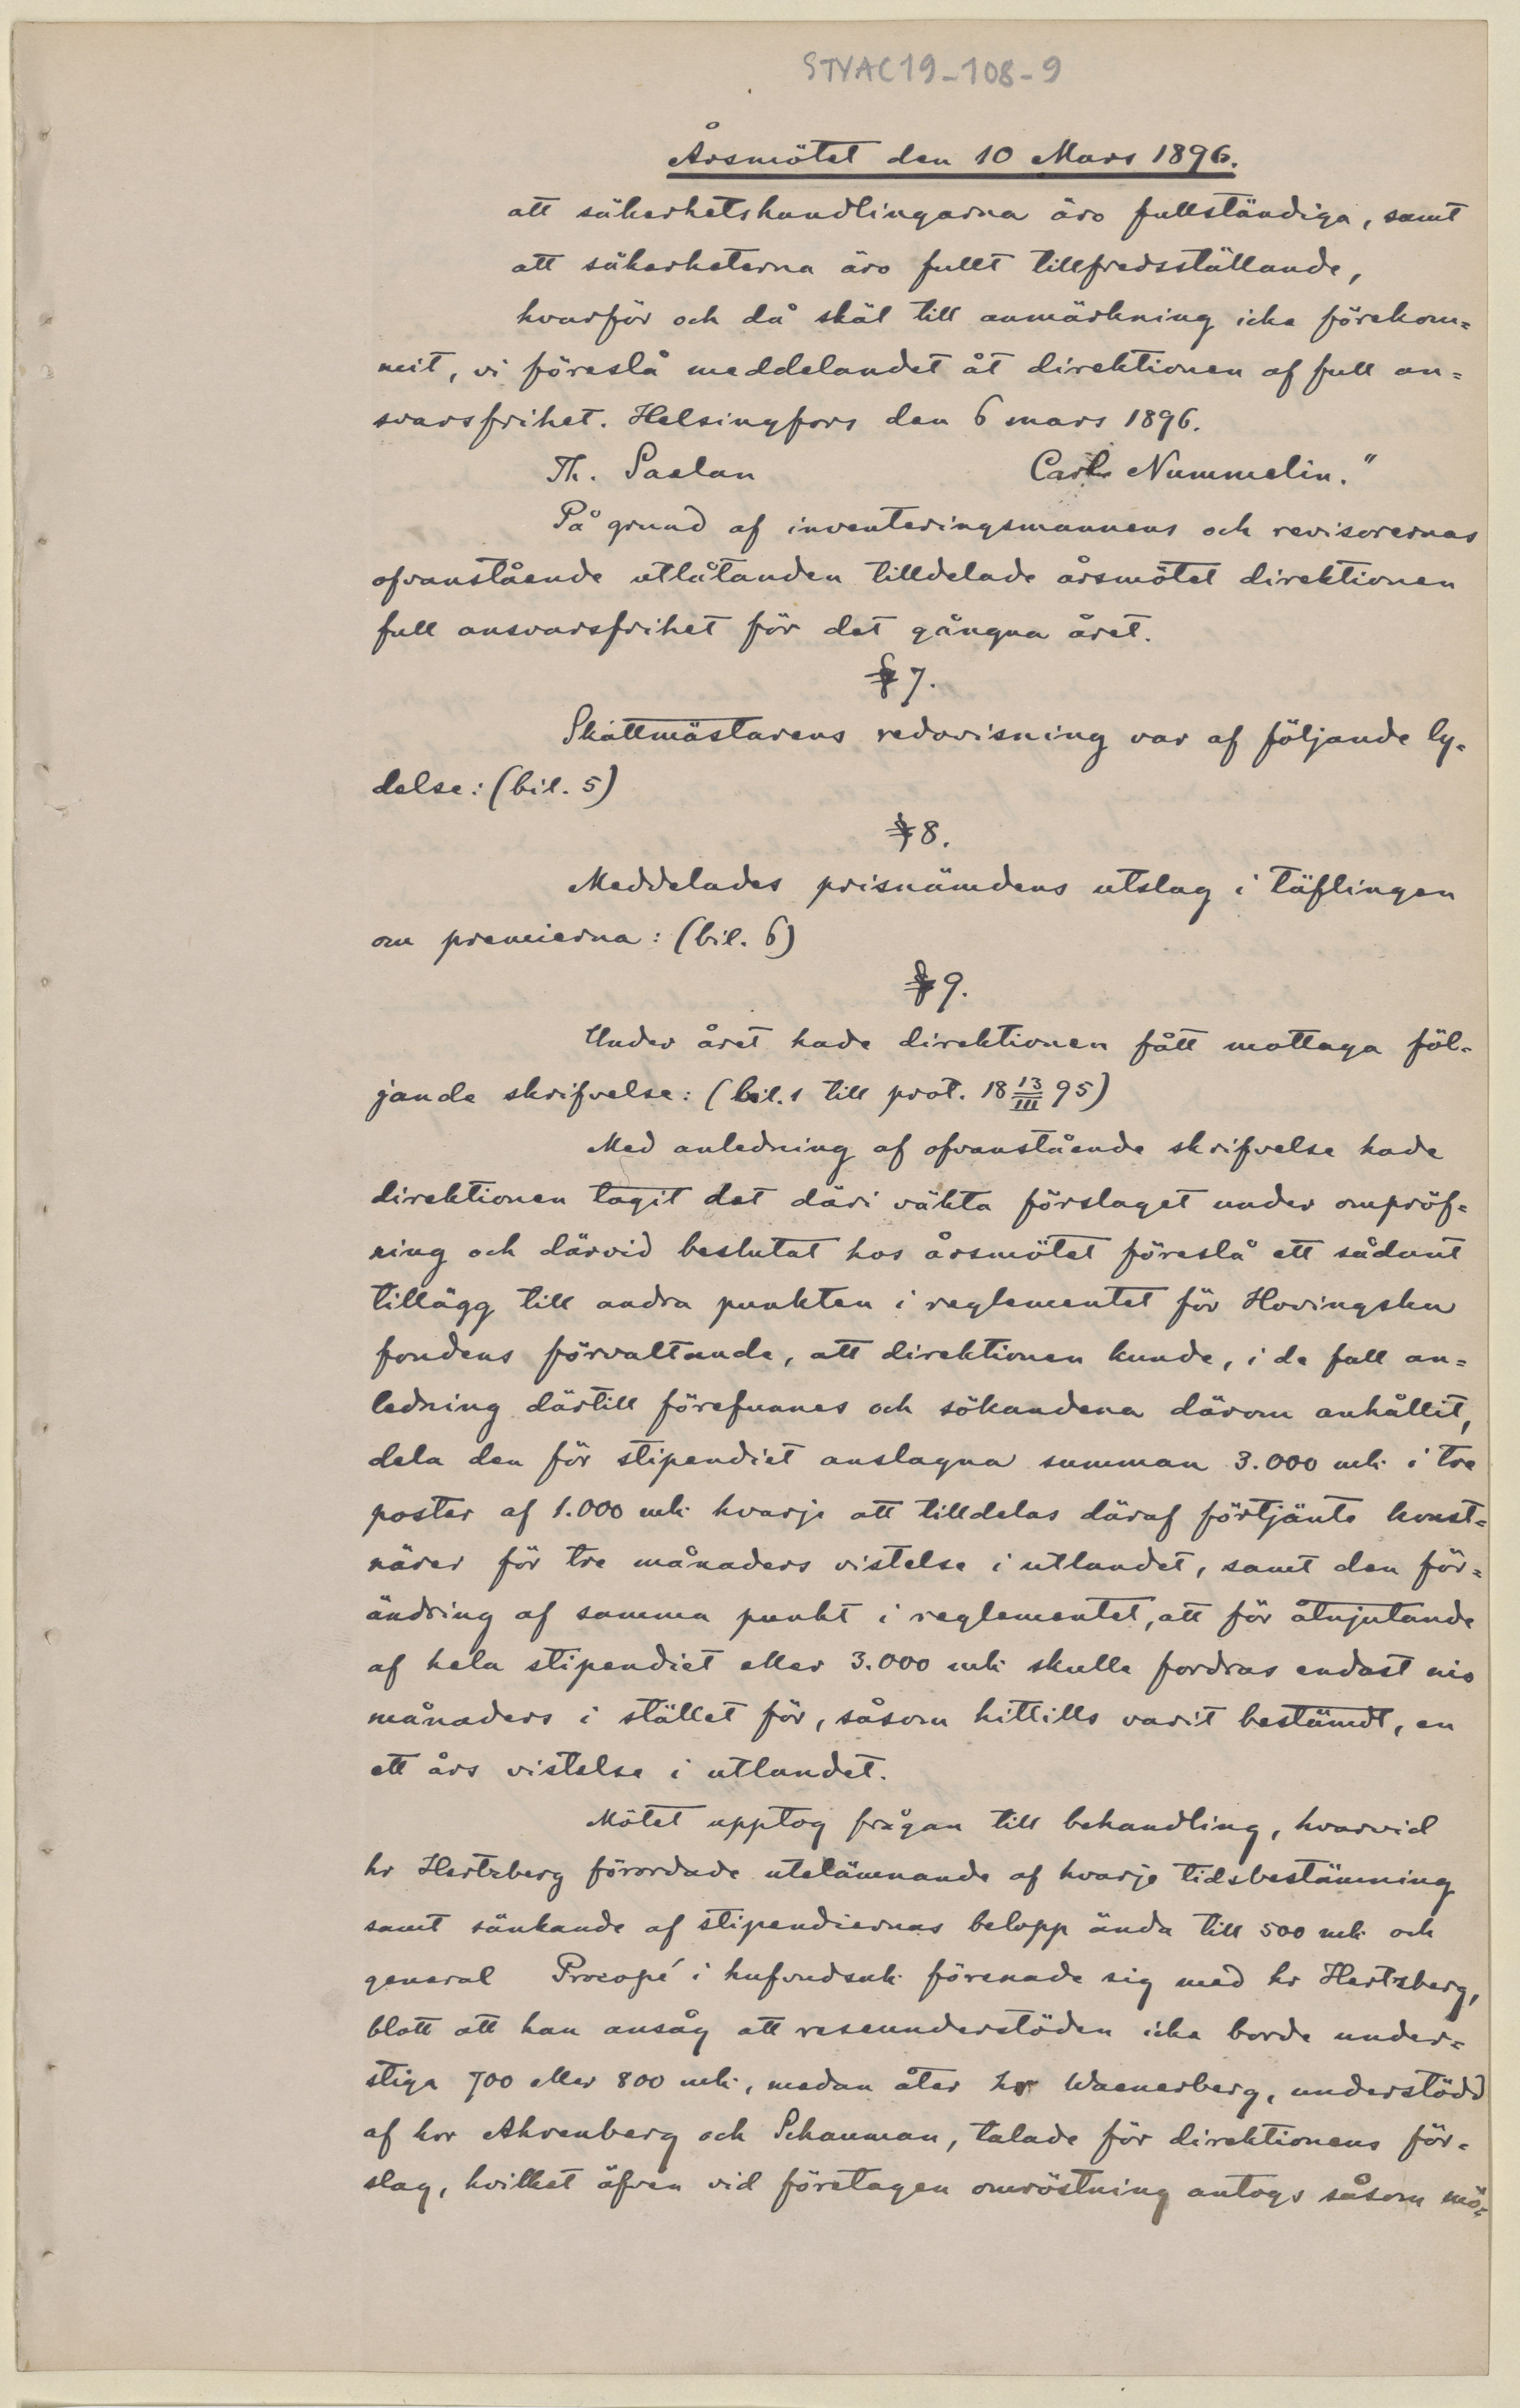 STYAC19-108-9
Årsmötet den 10 Mars 1896.
att säkerhetshandlingarna äro fullständiga, samt
att säkerheterna äro fullt tillfredsställande,
hvarför och då skäl till anmärkning icke förekom=
mit, vi föreslå meddelandet åt direktionen af full an=
svarsfrihet. Helsingfors den 6 mars 1896.
Th. Saelan Carl Nummelin."
På grund af inventeringsmannens och revisorernas
ofvanstående utlåtanden tilldelade årsmötet direktionen
full ansvarsfrihet för det gångna året.
§ 7.
Skattmästarens redovisning var af följande ly=
delse: (bil. 5)
§ 8.
Meddelades prisnämdens utslag i täflingen
om premierna: (bil. 6)
§ 9.
Under året hade direktionen fått mottaga föl=
jande skrifvelse: (bil. 1 till prot. 18 13/III 95)
Med anledning af ofvanstående skrifvelse hade
direktionen tagit det däri väkta förslaget under ompröf=
ning och därvid beslutat hos årsmötet föreslå ett sådant
tillägg till andra punkten i reglementet för Hovingska
fondens förvaltande, att direktionen kunde, i de fall an=
ledning därtill förefunnes och sökandena därom anhållit,
dela den för stipendiet anslagna summan 3.000 mk i tre
poster af 1.000 mk hvarje att tilldelas däraf förtjänte konst=
närer för tre månaders vistelse i utlandet, samt den för=
ändring af samma punkt i reglementet, att för åtnjutande
af hela stipendiet eller 3.000 mk skulle fordras endast nio
månaders i stället för, såsom hittills varit bestämdt, en
ett års vistelse i utlandet.
Mötet upptog frågan till behandling, hvarvid
hr Hertzberg förordade utelämnande af hvarje tidsbestämning
samt sänkande af stipendiernas belopp ända till 500 mk och
general Procopé i hufvudsak förenade sig med hr Hertzberg,
blott att han ansåg att reseunderstöden icke borde under=
stiga 700 eller 800 mk, medan åter hr Waenerberg, understödd
af hrr Ahrenberg och Schauman, talade för direktionens för=
slag, hvilket äfven vid företagen omröstning antogs såsom mö=